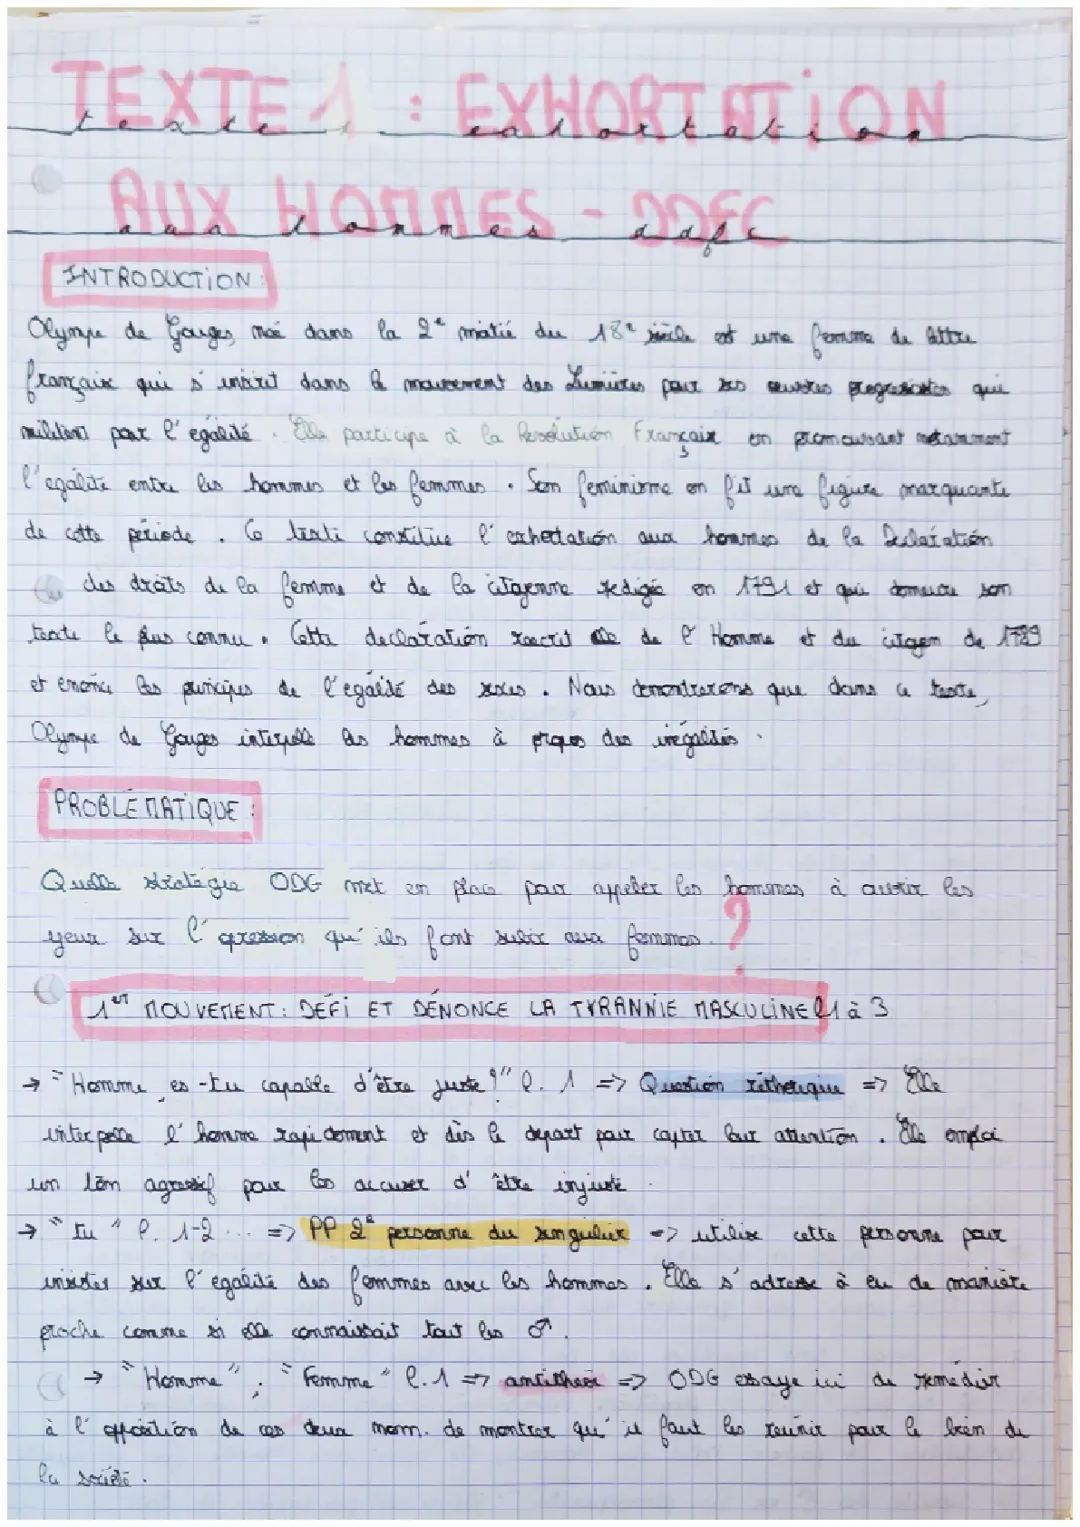 TEXTE 1 : EXHORTATION
texte 1 exhortation
AUX HOMMES - DDFC
aux hommes ddfc
INTRODUCTION :
Olympe de Gouges, née dans la 2e moitié du 18e siècle est une femme de lettre
française qui s'inscrit dans le mouvement des Lumières pour ses oeuvres progressistes qui
militent pour l'égalité. Elle participe à la Révolution Française en promouvant notamment
l'égalité entre les hommes et les femmes. Son féminisme en fît une figure marquante
de cette période. Ce texte constitue l'exhortation aux hommes de la Déclaration
des droits de la femme et de la citoyenne rédigée en 1791 et qui demeure son
texte le plus connu. Cette déclaration réecrit de l'Homme et du citoyen de 1789
et énonce les principes de l'égalité des sexes. Nous démontrerons que dans ce texte,
Olympe de Gouges interpelle les hommes à propos des inégalités.
PROBLÉMATIQUE :
Quelle stratégie ODG met en place pour appeler les hommes à ouvrir les
yeux sur l'opression qu'ils font subir aux femmes ?
1er MOUVEMENT : DÉFI ET DÉNONCE LA TYRANNIE MASCULINE l1 à 3
→ "Homme, es-tu capable d'être juste ?" l. 1 => Question réthorique => Elle
interpelle l'homme rapidement et dès le départ pour capter leur attention. Elle emploi
un ton agressif pour les accuser d'être injuste.
→ "tu" l. 1-2 ... => PP 2e personne du singulier => utilise cette personne pour
insister sur l'égalité des femmes avec les hommes. Elle s'adresse à eu de manière
proche comme si elle connaissait tout les ♂.
→ "Homme" ; "Femme" l.1 => antithèse => ODG essaye ici de remédier
à l'opposition de ces deux nom. de montrer qu'il faut les réunir pour le bien de
la société.